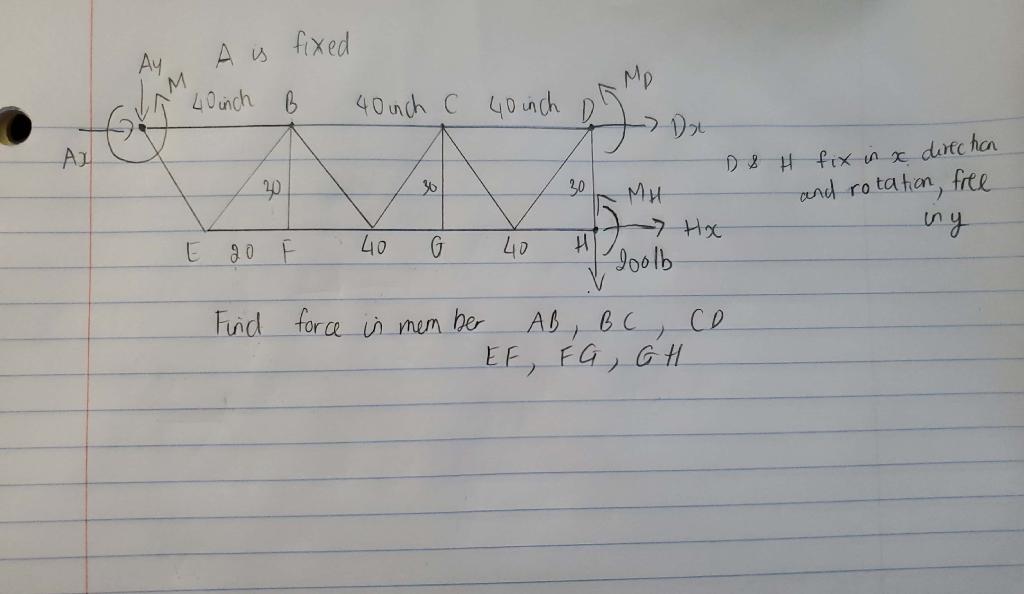 A is fixed
Ay
M
40inch B 40inch C 40inch D
MD
Dx
Ax
30 30 30
D & H fix in x direction
and rotation, free
in y
MH
Hx
E 20 F 40 G 40 H
200lb
Find force in member AB, BC, CD
EF, FG, GH